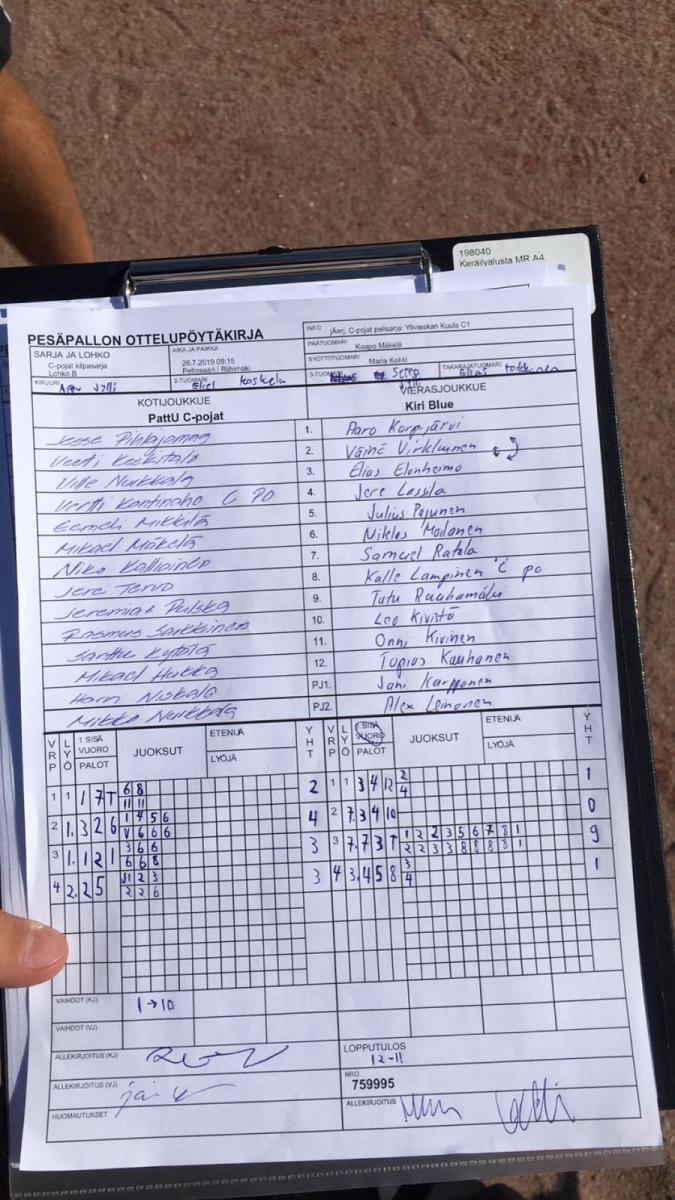 198040
Keräilyalusta MR A4
PESÄPALLON OTTELUPÖYTÄKIRJA
INFO jAarj. C-pojat pelisarja: Ylivieskan Kuula C1
PÄÄTUOMARI Kaapo Mäkelä
SARJA JA LOHKO
C-pojat kilpasarja
Lohko B
AIKA JA PAIKKA
26.7.2019 09:15
Peltosaari / Riihimäki
SYÖTTÖTUOMARI Maria Kekki
KIRJURI
2-TUOMARI Eliel Koskela
3-TUOMARI
TAKARAJATUOMARI Elias
KOTIJOUKKUE
PattU C-pojat
VIERASJOUKKUE
Kiri Blue
Jesse Pihlajamaa 1. Aaro Korpijärvi
Veeti Keskitalo 2. Väinö Virkkunen
Ville Nurkkala 3. Elias Elonheimo
Vertti Kontinaho C PO 4. Jere Lassila
Eemeli Mikkilä 5. Julius Pesunen
Mikael Mäkelä 6. Niklas Moilanen
Niko Kalliainen 7. Samuel Ratala
Jere Tervo 8. Kalle Lampinen C PO
Jeremias Pulska 9. Tatu Rauhamäki
Rasmus Sarkkinen 10. Leo Kivistö
Santtu Kytölä 11. Onni Kivinen
Mikael Hukka 12. Topias Kauhanen
Niskala PJ1. Jani Karppanen
Mikko Nurkkala PJ2. Alex Leinonen
VRP LYÖ 1 SISÄ VUORO PALOT JUOKSUT ETENIJÄ LYÖJÄ YHT
VRP LYÖ SISÄ VUORO PALOT JUOKSUT ETENIJÄ LYÖJÄ YHT
1 1 1 7 T 6 8 2 1 1 3 4 12 2 1
11 11 4
2 1. 3 2 6 1 4 5 6 4 2 7. 3 4 10 0
V 6 6 6
3 1. 1 2 1 3 6 6 3 3 7. 7 3 T 1 2 2 3 5 6 7 8 1 9
6 6 8 2 2 3 3 8 8 8 8 1
4 2. 2 5 J1 2 3 3 4 3. 4 5 8 3 1
2 2 6 4
VAIHDOT (KJ) 1 → 10
VAIHDOT (VJ)
ALLEKIRJOITUS (KJ)
LOPPUTULOS
12-11
ALLEKIRJOITUS (VJ)
NRO
759995
HUOMAUTUKSET
ALLEKIRJOITUS